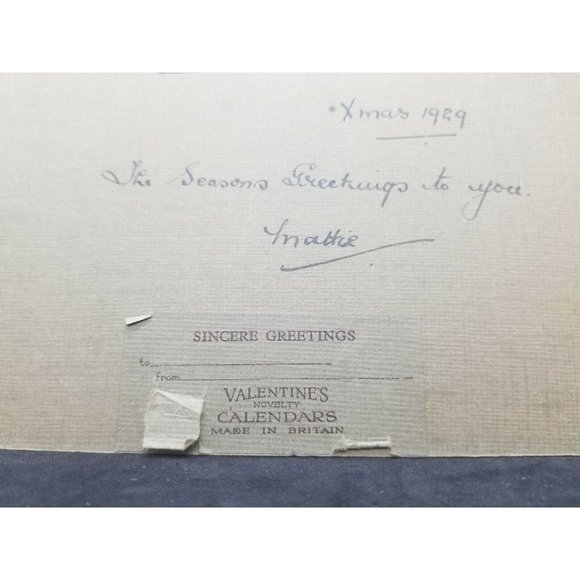 Xmas 1929
The Seasons Greetings to you.
Mattie
SINCERE GREETINGS
to
from
VALENTINE'S
NOVELTY
CALENDARS
MADE IN BRITAIN